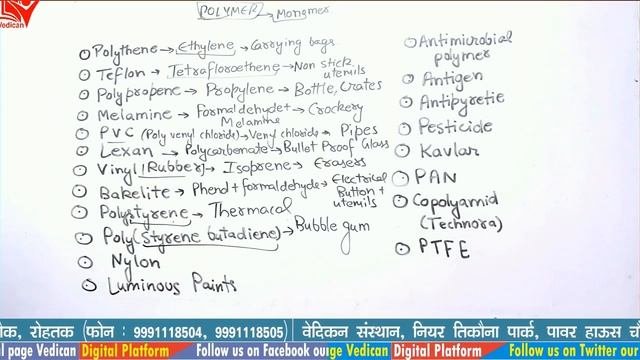 Vedican
POLYMER → Monomer
Polythene → Ethylene → Carrying bags
Teflon → Tetrafloroethene → Non stick utensils
Polypropene → Propylene → Bottle, Crates
Melamine → Formaldehydet Melamine → Crockery
PVC (Poly venyl chloride) → Venyl chloride → Pipes
Lexan → Polycarbonate → Bullet Proof Glass
Vinyl (Rubber) → Isoprene → Erasers
Bakelite → Phenol + formaldehyde → Electrical Button + utensils
Polystyrene → Thermacol
Poly(Styrene butadiene) → Bubble gum
Nylon
Luminous Paints
Antimicrobial polymer
Antigen
Antipyretic
Pesticide
Kavlar
PAN
Copolyamid (Technora)
PTFE
क, रोहतक (फोन : 9991118504, 9991118505) वेदिकन संस्थान, नियर तिकौना पार्क, पावर हाऊस चौ
l page Vedican Digital Platform Follow us on Facebook ouige Vedican Digital Platform Follow us on Twitter ou